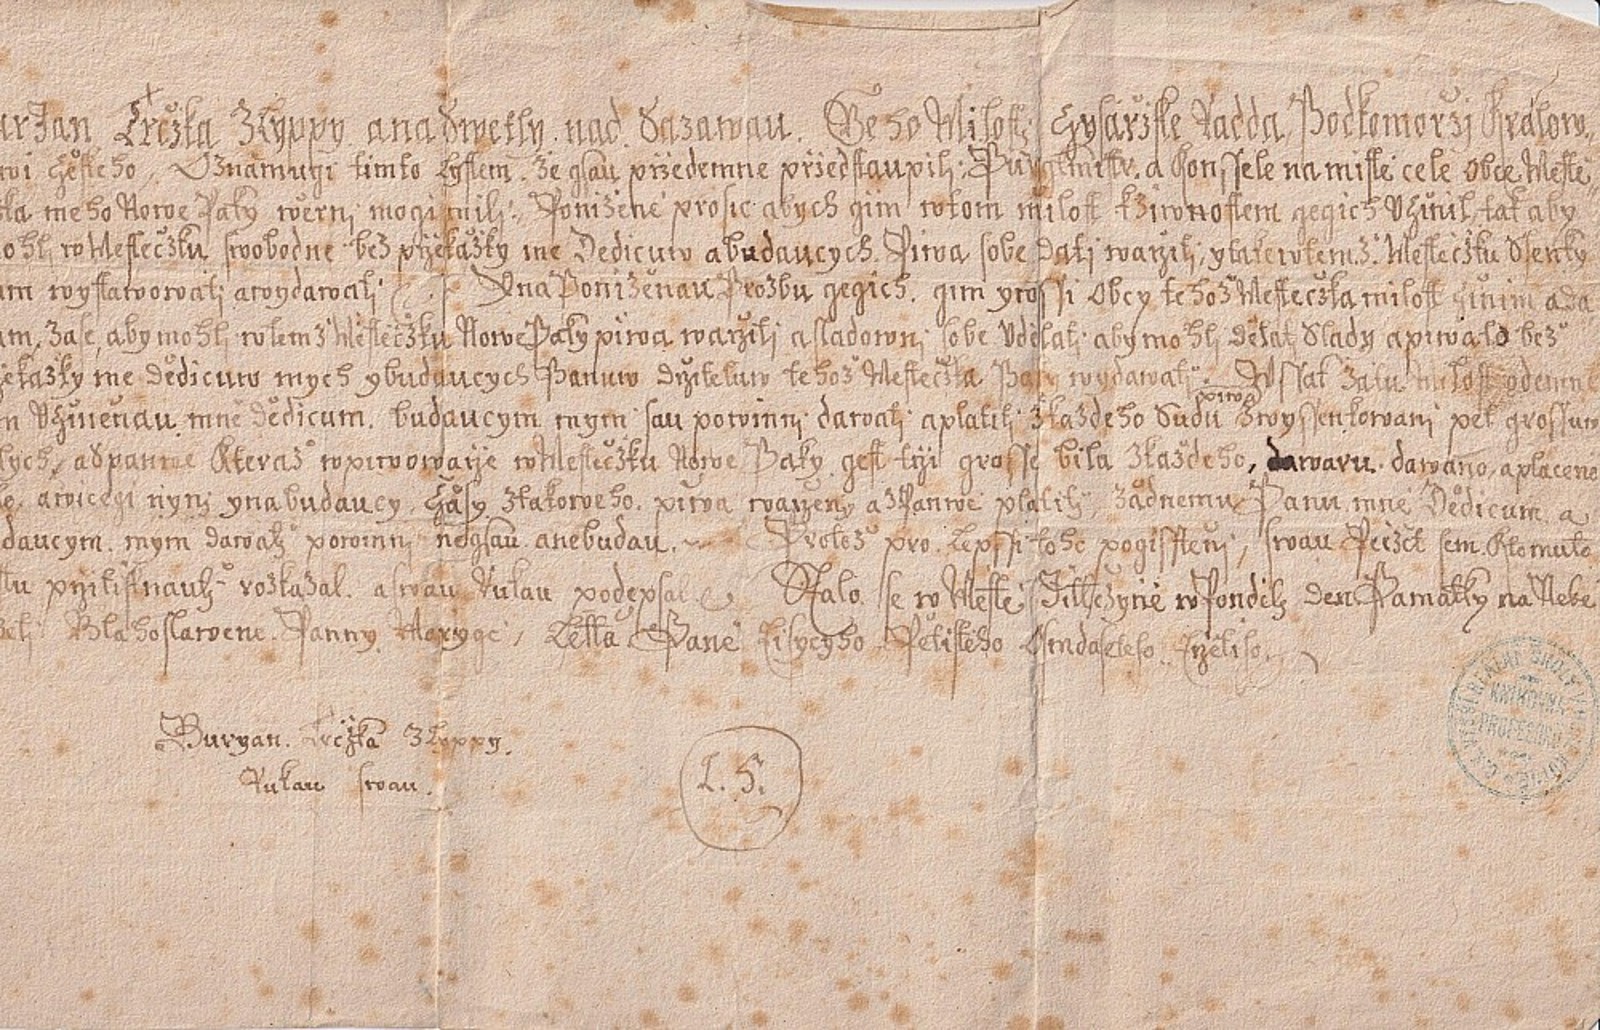 Trczka Zlyppy ana Swetly nad Sazawau. Geho Milosti Cysařske Radda, Podkomorži Kralow
Cžeskeho. Oznamugi timto Lystem, že gsau přzedemne přzedstaupili Purgkmistr a Konssele na miste cele Obce Meste
meho Nowe Paky werni mogi mili, Ponižene prosic abych gim wtom milost kžiwnostem gegich Učžinil, tak aby
w Mestečžku swobodne bez přzekažky me Dedicuw a budaucych Piwa sobe dati waržili, y take wtemž Mestečžku Ssenky
wystawowati a wydawati. Y na Ponižénau Prozbu gegich gim y wssi Obcy tehož Mestečžka milost činim a da
zase, aby mohli wtemž Mestečžku Nowe Paky piwa waržiti a sladowni sobe Udělati, aby mohli dělat Slady a piwa bez
me dědicuw mych y budaucych Panuw držiteluw tehož Mestečžka Paky wydawati. Wssak zatu milost odemne
Učžiněnau mně dědicum budaucym mym sau powinni dawati a platiti zkaždeho Sudu piwa zwyssenkowani pět grossuw
Kteraž wpiwowaře w Mestečžku Nowe Paky gest tři grosse bila zkaždeho, dawaru dawano, a placene
a wicegi nyni y na budaucy Cžasy ztakoweho piwa waržen a zPanwe platiti, žadnemu Panu mně Dědicum a
daucym mym dawati powinni negsau anebudau. Protož pro lepssi toho pogisstěni, swau Pečžet sem Ktomuto
přzitisknauti rozkazal a swau Rukau podepsal. Stalo se w Městě Gitčžyně w Pondeli den Pamatky na Nebe
Blahoslawene Panny Marygi, Letta Paně Tisycyho Pětisteho Osmdasateho
Buryan Trčžka Zlyppy.
Rukau swau.
L. S.